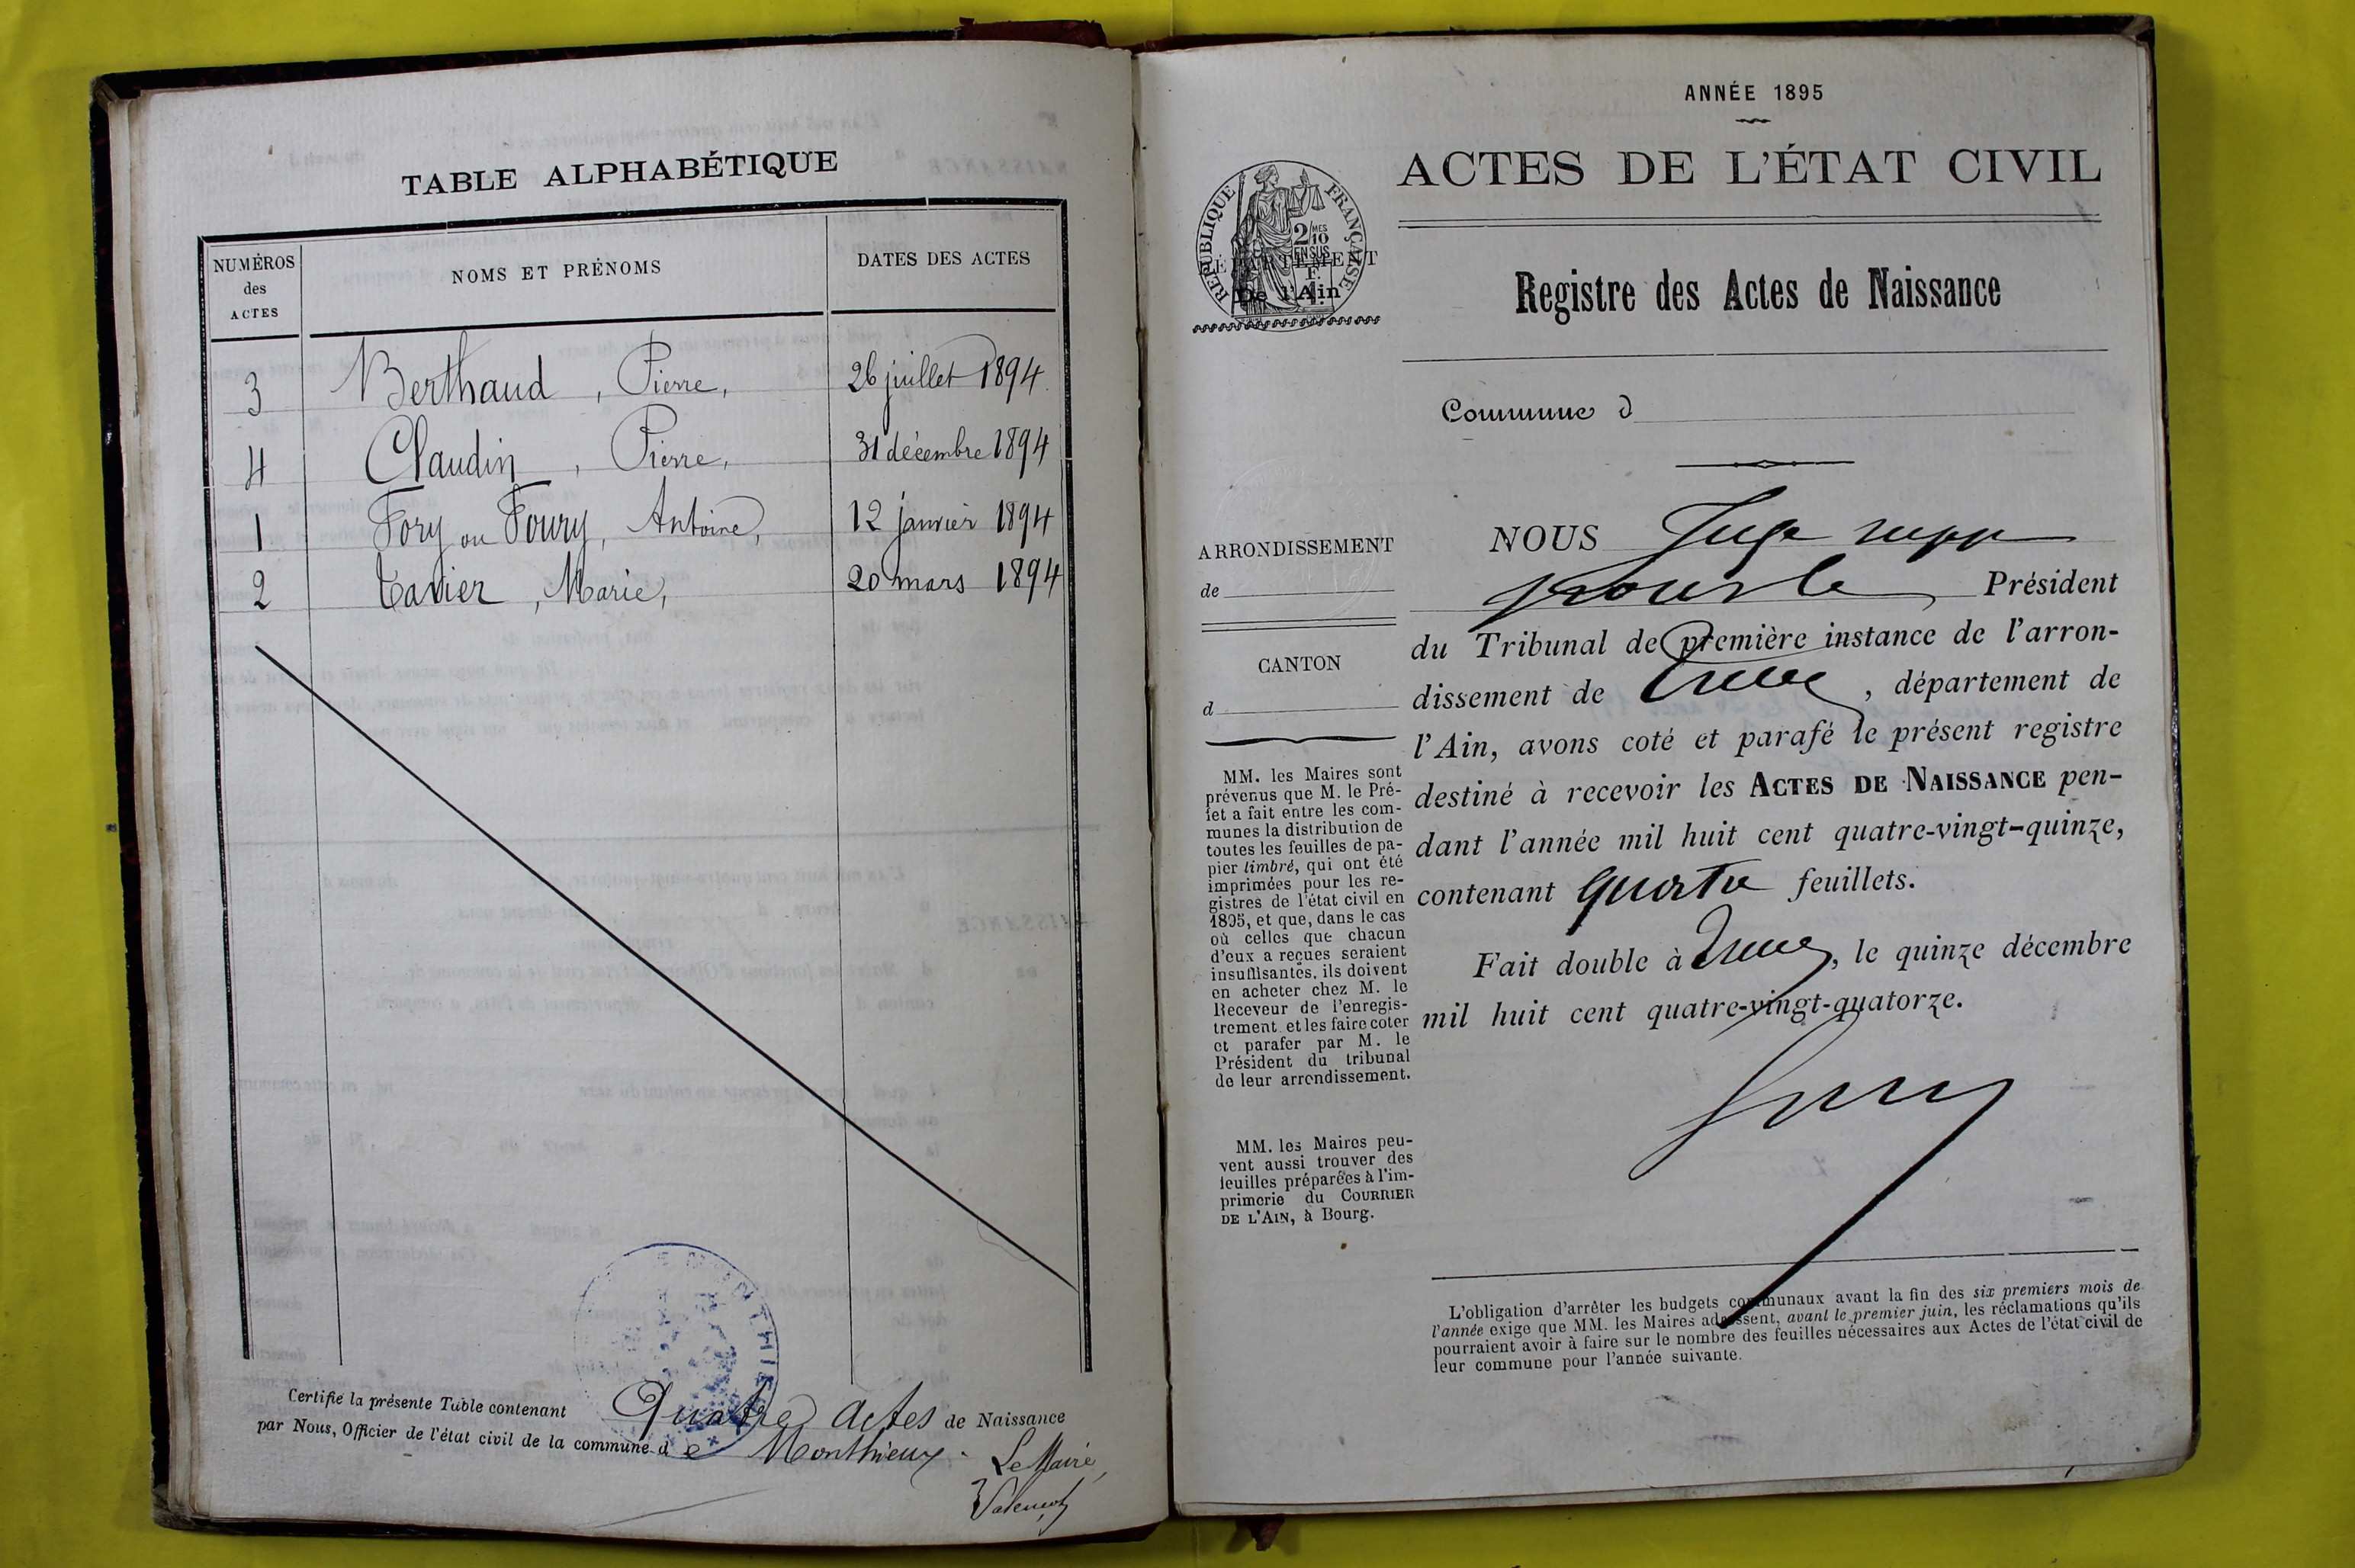 TABLE ALPHABÉTIQUE
NUMÉROS
des
ACTES
NOMS ET PRÉNOMS
DATES DES ACTES
3 Berthaud, Pierre, 26 juillet 1894
4 Claudin, Pierre, 31 décembre 1894
1 Fory ou Foury, Antoine, 12 janvier 1894
2 Tavier, Marie, 20 mars 1894
Certifié la présente Table contenant Quatre actes de Naissance
par Nous, Officier de l'état civil de la commune de Monthieux
Le Maire,
ANNÉE 1895
ACTES DE L'ÉTAT CIVIL
RÉPUBLIQUE FRANÇAISE
2/10 MES
EN SUS
DÉPARTEMENT
De l'Ain
Registre des Actes de Naissance
Commune d
ARRONDISSEMENT
de
CANTON
d
MM. les Maires sont
prévenus que M. le Pré-
fet a fait entre les com-
munes la distribution de
toutes les feuilles de pa-
pier timbré, qui ont été
imprimées pour les re-
gistres de l'état civil en
1895, et que, dans le cas
où celles que chacun
d'eux a reçues seraient
insuffisantes, ils doivent
en acheter chez M. le
Receveur de l'enregis-
trement et les faire coter
et parafer par M. le
Président du tribunal
de leur arrondissement.
MM. les Maires peu-
vent aussi trouver des
feuilles préparées à l'im-
primerie du COURRIER
DE L'AIN, à Bourg.
NOUS Juge supp
pour le Président
du Tribunal de première instance de l'arron-
dissement de , département de
l'Ain, avons coté et parafé le présent registre
destiné à recevoir les ACTES DE NAISSANCE pen-
dant l'année mil huit cent quatre-vingt-quinze,
contenant quatre feuillets.
Fait double à , le quinze décembre
mil huit cent quatre-vingt-quatorze.
L'obligation d'arrêter les budgets communaux avant la fin des six premiers mois de
l'année exige que MM. les Maires adressent, avant le premier juin, les réclamations qu'ils
pourraient avoir à faire sur le nombre des feuilles nécessaires aux Actes de l'état civil de
leur commune pour l'année suivante.